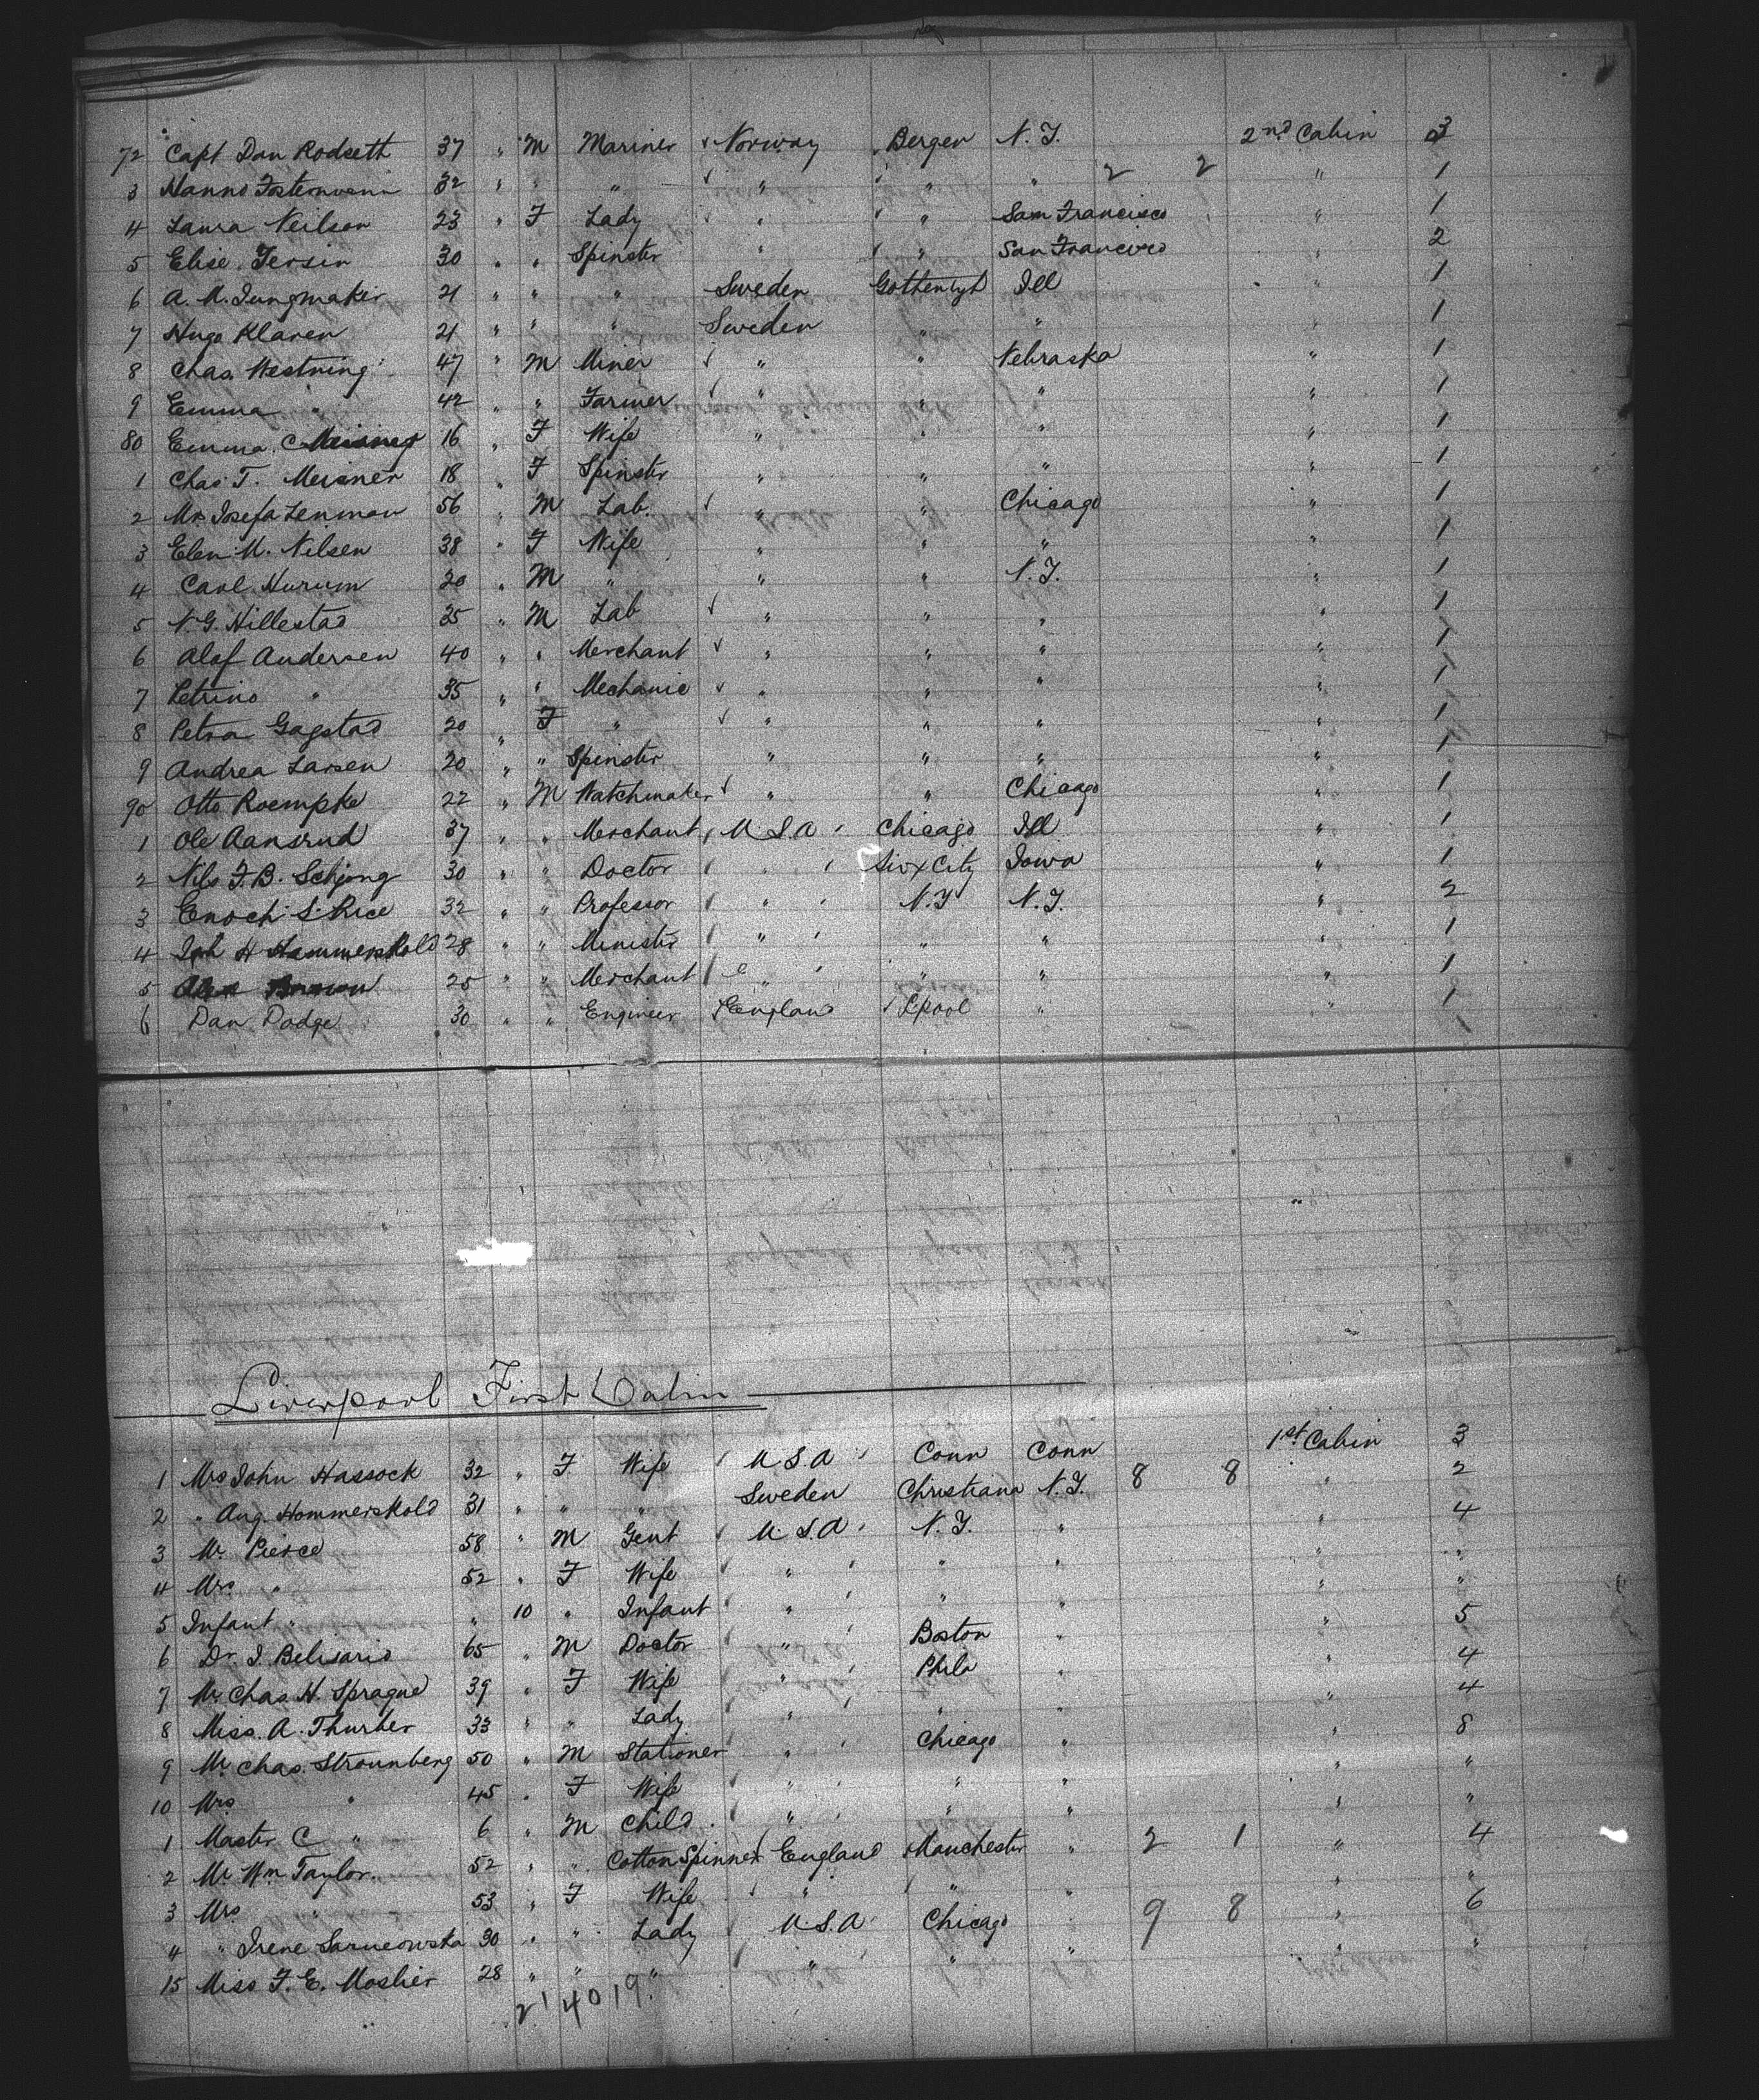 72 Capt Dan Rodseth 37 " M Mariner Norway Bergen N.Y. 2nd Cabin 3
3 Hanno 32 " " " " " " 2 2 " 1
4 Laura Neilson 23 " F Lady " " San Francisco " 1
5 Elise Jersin 30 " " Spinster " " San Francisco " 2
6 A. M. Jungmaker 21 " " " Sweden Gottenbgh Ill " 1
7 Hugo Klaren 21 " " " Sweden " " " 1
8 Chas. Westning 47 " M Miner " " Nebraska " 1
9 Emma " 42 " " Farmer " " " " 1
80 Emma C 16 " F Wife " " " " 1
1 Chas T. Meisner 18 " F Spinster " " " " 1
2 Mr Josefa Lenman 56 " M Lab. " " Chicago " 1
3 Elen M. Nilsen 38 " F Wife " " " " 1
4 Carl Hurum 20 " M " " " N.Y. " 1
5 N.G. Hillestad 35 " M Lab " " " " 1
6 Alof Andersen 40 " " Merchant " " " " 1
7 Petrino " 35 " " Mechanic " " " " 1
8 Petra Gagstad 20 " F " " " " " 1
9 Andrea Larsen 20 " " Spinster " " " " 1
90 Otto Roempke 22 " M Watchmaker " " Chicago " 1
1 Ole Aansrud 37 " " Merchant U.S.A Chicago Ill " 1
2 Nils F.B. Schjong 30 " " Doctor " Siox City Iowa " 1
3 Enoch S. Rice 32 " " Professor " N.Y N.Y. " 2
4 Joh H Hammerskold 28 " " Minister " " " " 1
5 Alex Brown 25 " " Merchant " " " " 1
6 Dan Dodge 30 " " Engineer England Lpool " " 1
Liverpool First Cabin
1 Mrs John Hassock 32 " F Wife U S A Conn Conn 1st Cabin 3
2 " Aug. Hommerskold 31 " " " Sweden Christiana N.Y. 8 8 " 2
3 Mr Pierce 58 " M Gent U.S.A N.Y. " " 4
4 Mrs " 52 " F Wife " " " " "
5 Infant " " 10 " Infant " " " " "
6 Dr. J. Belisario 65 " M Doctor " Boston " " 5
7 Mr Chas. H. Sprague 39 " F Wife " Phila " " 4
8 Miss. A. Thurber 33 " " Lady " " " " 4
9 Mr Chas. Strounberg 50 " M Stationer " Chicago " " 8
10 Mrs " 45 " F Wife " " " " "
1 Master C " 6 " M Child " " " " "
2 Mr Wm Taylor 52 " " Cotton Spinner England Manchester " 2 1 " 4
3 Mrs " 53 " F Wife " " " " "
4 " Irene Sarneowska 30 " " Lady U.S.A Chicago " 9 8 " 6
15 Miss F. E. Mosher 28 " " " " " " " "